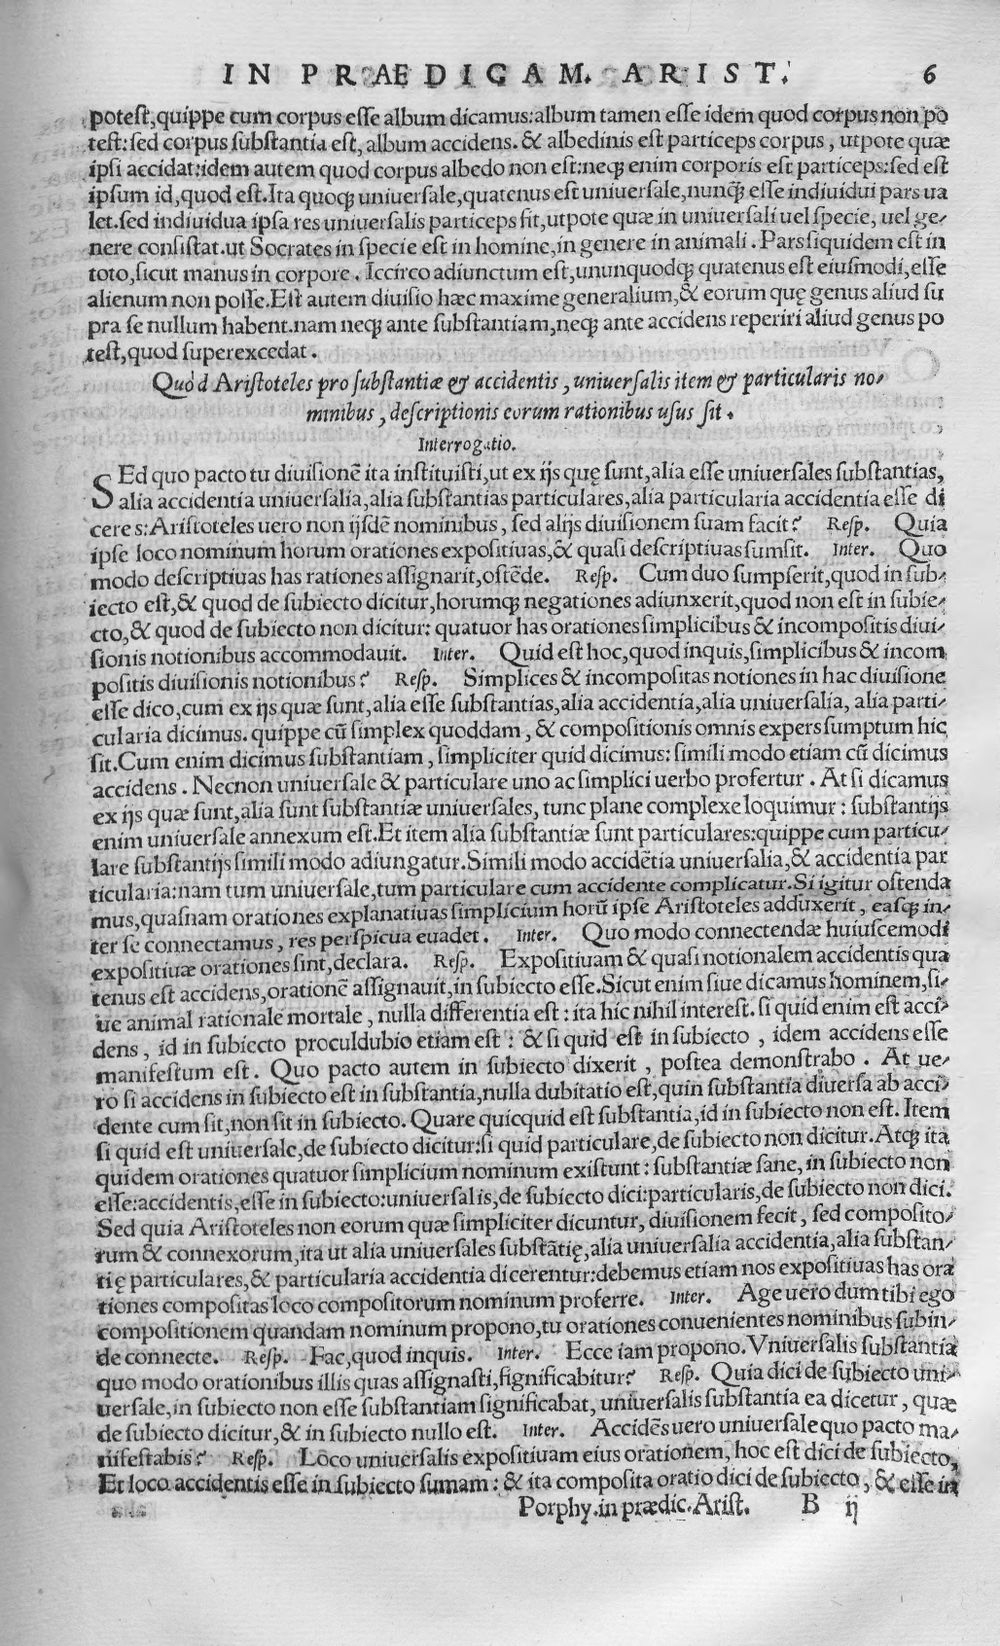 IN PRÆDICAM. ARIST. 6
potest,quippe cum corpus esse album dicamus:album tamen esse idem quod corpus non po
test:sed corpus substantia est, album accidens.& albedinis est particeps corpus, utpote quæ
ipsi accidat:idem autem quod corpus albedo non est:neqꝫ enim corporis est particeps:sed est
ipsum id,quod est.Ita quoqꝫ uniuersale,quatenus est uniuersale,nunqꝫ esse indiuidui pars ua
let.sed indiuidua ipsa res uniuersalis particeps fit,utpote quæ in uniuersali uel specie, uel ge/
nere consistat.ut Socrates in specie est in homine,in genere in animali. Pars siquidem est in
toto,sicut manus in corpore. Iccirco adiunctum est,ununquodqꝫ quatenus est eiusmodi,esse
alienum non posse.Est autem diuisio hæc maxime generalium,& eorum quę genus aliud su
pra se nullum habent.nam neqꝫ ante substantiam,neqꝫ ante accidens reperiri aliud genus po
test,quod superexcedat.
Quòd Aristoteles pro substantiæ & accidentis, uniuersalis item & particularis no/
minibus, descriptionis eorum rationibus usus sit.
Interrogatio.
SEd quo pacto tu diuisionē ita instituisti,ut ex ijs quę sunt,alia esse uniuersales substantias,
alia accidentia uniuersalia,alia substantias particulares,alia particularia accidentia esse di
ceres:Aristoteles uero non ijsdē nominibus, sed alijs diuisionem suam facit? Resp. Quia
ipse loco nominum horum orationes expositiuas,& quasi descriptiuas sumsit. Inter. Quo
modo descriptiuas has rationes assignarit,ostēde. Resp. Cum duo sumpserit,quod in sub/
iecto est,& quod de subiecto dicitur,horumqꝫ negationes adiunxerit,quod non est in subie/
cto,& quod de subiecto non dicitur: quatuor has orationes simplicibus & incompositis diui/
sionis notionibus accommodauit. Inter. Quid est hoc,quod inquis,simplicibus & incom
positis diuisionis notionibus? Resp. Simplices & incompositas notiones in hac diuisione
esse dico,cum ex ijs quæ sunt,alia esse substantias,alia accidentia,alia uniuersalia, alia parti/
cularia dicimus. quippe cū simplex quoddam, & compositionis omnis expers sumptum hic
sit.Cum enim dicimus substantiam, simpliciter quid dicimus: simili modo etiam cū dicimus
accidens. Necnon uniuersale & particulare uno ac simplici uerbo profertur. At si dicamus
ex ijs quæ sunt,alia sunt substantiæ uniuersales, tunc plane complexe loquimur: substantijs
enim uniuersale annexum est.Et item alia substantiæ sunt particulares:quippe cum particu/
lare substantijs simili modo adiungatur.Simili modo accidētia uniuersalia,& accidentia par
ticularia:nam tum uniuersale,tum particulare cum accidente complicatur.Si igitur ostenda
mus,quasnam orationes explanatiuas simplicium horū ipse Aristoteles adduxerit, easqꝫ in/
ter se connectamus, res perspicua euadet. Inter. Quo modo connectendæ huiuscemodi
expositiuæ orationes sint,declara. Resp. Expositiuam & quasi notionalem accidentis qua
tenus est accidens,orationē assignauit,in subiecto esse.Sicut enim siue dicamus hominem,si/
ue animal rationale mortale, nulla differentia est: ita hic nihil interest. si quid enim est acci/
dens, id in subiecto proculdubio etiam est: & si quid est in subiecto, idem accidens esse
manifestum est. Quo pacto autem in subiecto dixerit, postea demonstrabo. At ue/
ro si accidens in subiecto est in substantia,nulla dubitatio est,quin substantia diuersa ab acci/
dente cum sit,non sit in subiecto.Quare quicquid est substantia,id in subiecto non est. Item
si quid est uniuersale,de subiecto dicitur:si quid particulare,de subiecto non dicitur.Atqꝫ ita
quidem orationes quatuor simplicium nominum existunt: substantiæ sane, in subiecto non
esse:accidentis,esse in subiecto:uniuersalis,de subiecto dici:particularis,de subiecto non dici.
Sed quia Aristoteles non eorum quæ simpliciter dicuntur, diuisionem fecit, sed composito/
rum & connexorum,ita ut alia uniuersales substātię,alia uniuersalia accidentia,alia substan/
tię particulares,& particularia accidentia dicerentur:debemus etiam nos expositiuas has ora
tiones compositas loco compositorum nominum proferre. Inter. Age uero dum tibi ego
compositionem quandam nominum propono,tu orationes conuenientes nominibus subin/
de connecte. Resp. Fac,quod inquis. Inter. Ecce iam propono. Vniuersalis substantia
quo modo orationibus illis quas assignasti,significabitur? Resp. Quia dici de subiecto uni/
uersale,in subiecto non esse substantiam significabat, uniuersalis substantia ea dicetur, quæ
de subiecto dicitur,& in subiecto nullo est. Inter. Accidēs uero uniuersale quo pacto ma/
nifestabis? Resp. Loco uniuersalis expositiuam eius orationem, hoc est dici de subiecto,
Et loco accidentis esse in subiecto sumam: & ita composita oratio dici de subiecto, & esse in
Porphy.in prædic.Arist. B ij